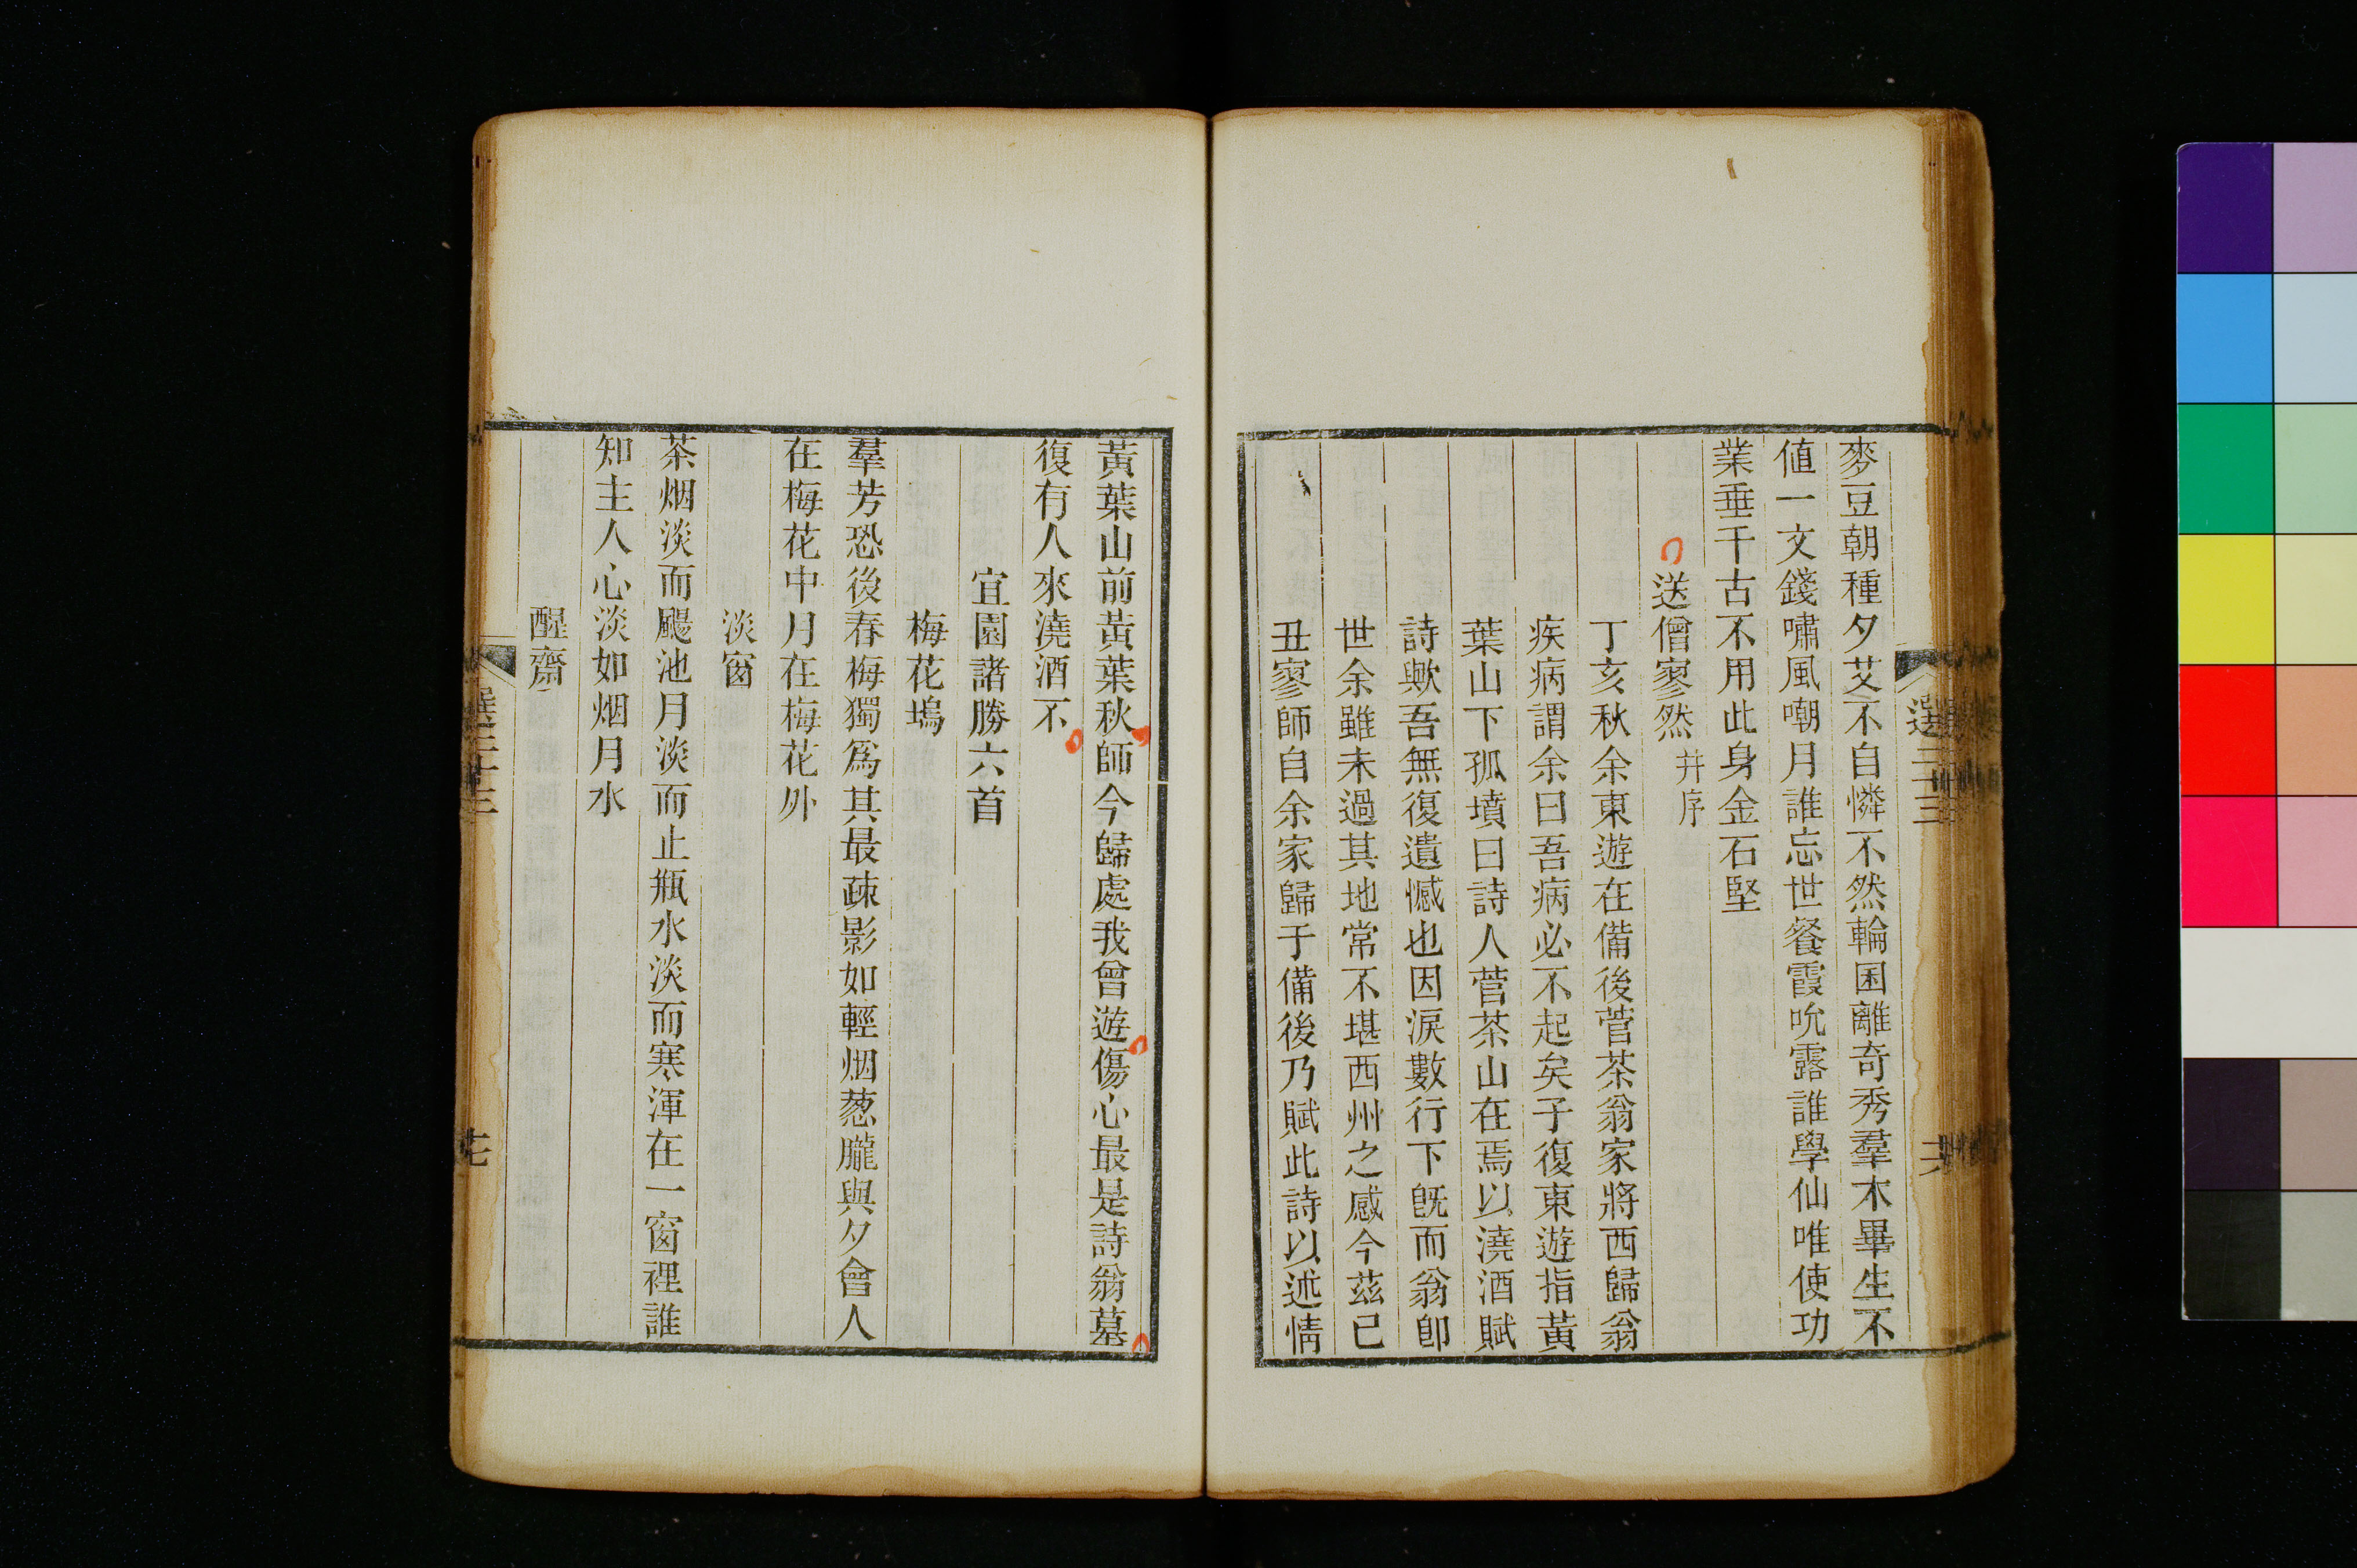 麥豆朝種夕艾不自憐不然輪囷離奇秀羣木畢生不
値一文錢嘯風嘲月誰忘世餐霞吮露誰學仙唯使功
業垂千古不用此身金石堅
送僧寥然并序
丁亥秋余東遊在備後菅茶翁家將西歸翁
疾病謂余曰吾病必不起矣子復東遊指黃
葉山下孤墳曰詩人菅茶山在焉以澆酒賦
詩歟吾無復遺憾也因淚數行下旣而翁卽
世余雖未過其地常不堪西州之感今茲己
丑寥師自余家歸于備後乃賦此詩以述情
選二十三
十六
黃葉山前黃葉秋師今歸處我曾遊傷心最是詩翁墓
復有人來澆酒不
宜園諸勝六首
梅花塢
羣芳恐後春梅獨爲其最疎影如輕烟葱朧與夕會人
在梅花中月在梅花外
淡窗
茶烟淡而颺池月淡而止瓶水淡而寒渾在一窗裡誰
知主人心淡如烟月水
醒齋
選二十三
十七